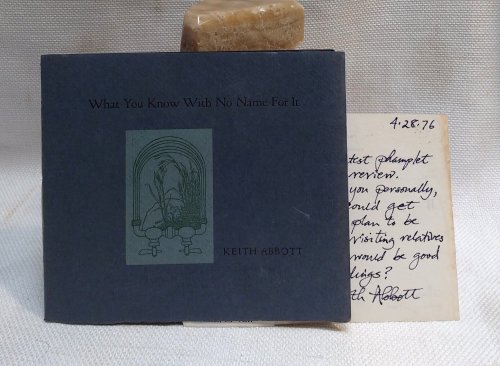 What You Know With No Name For It
KEITH ABBOTT
4.28.76
test phamplet
review.
you personally,
ould get
plan to be
visiting relatives
would be good
lings?
th Abbott